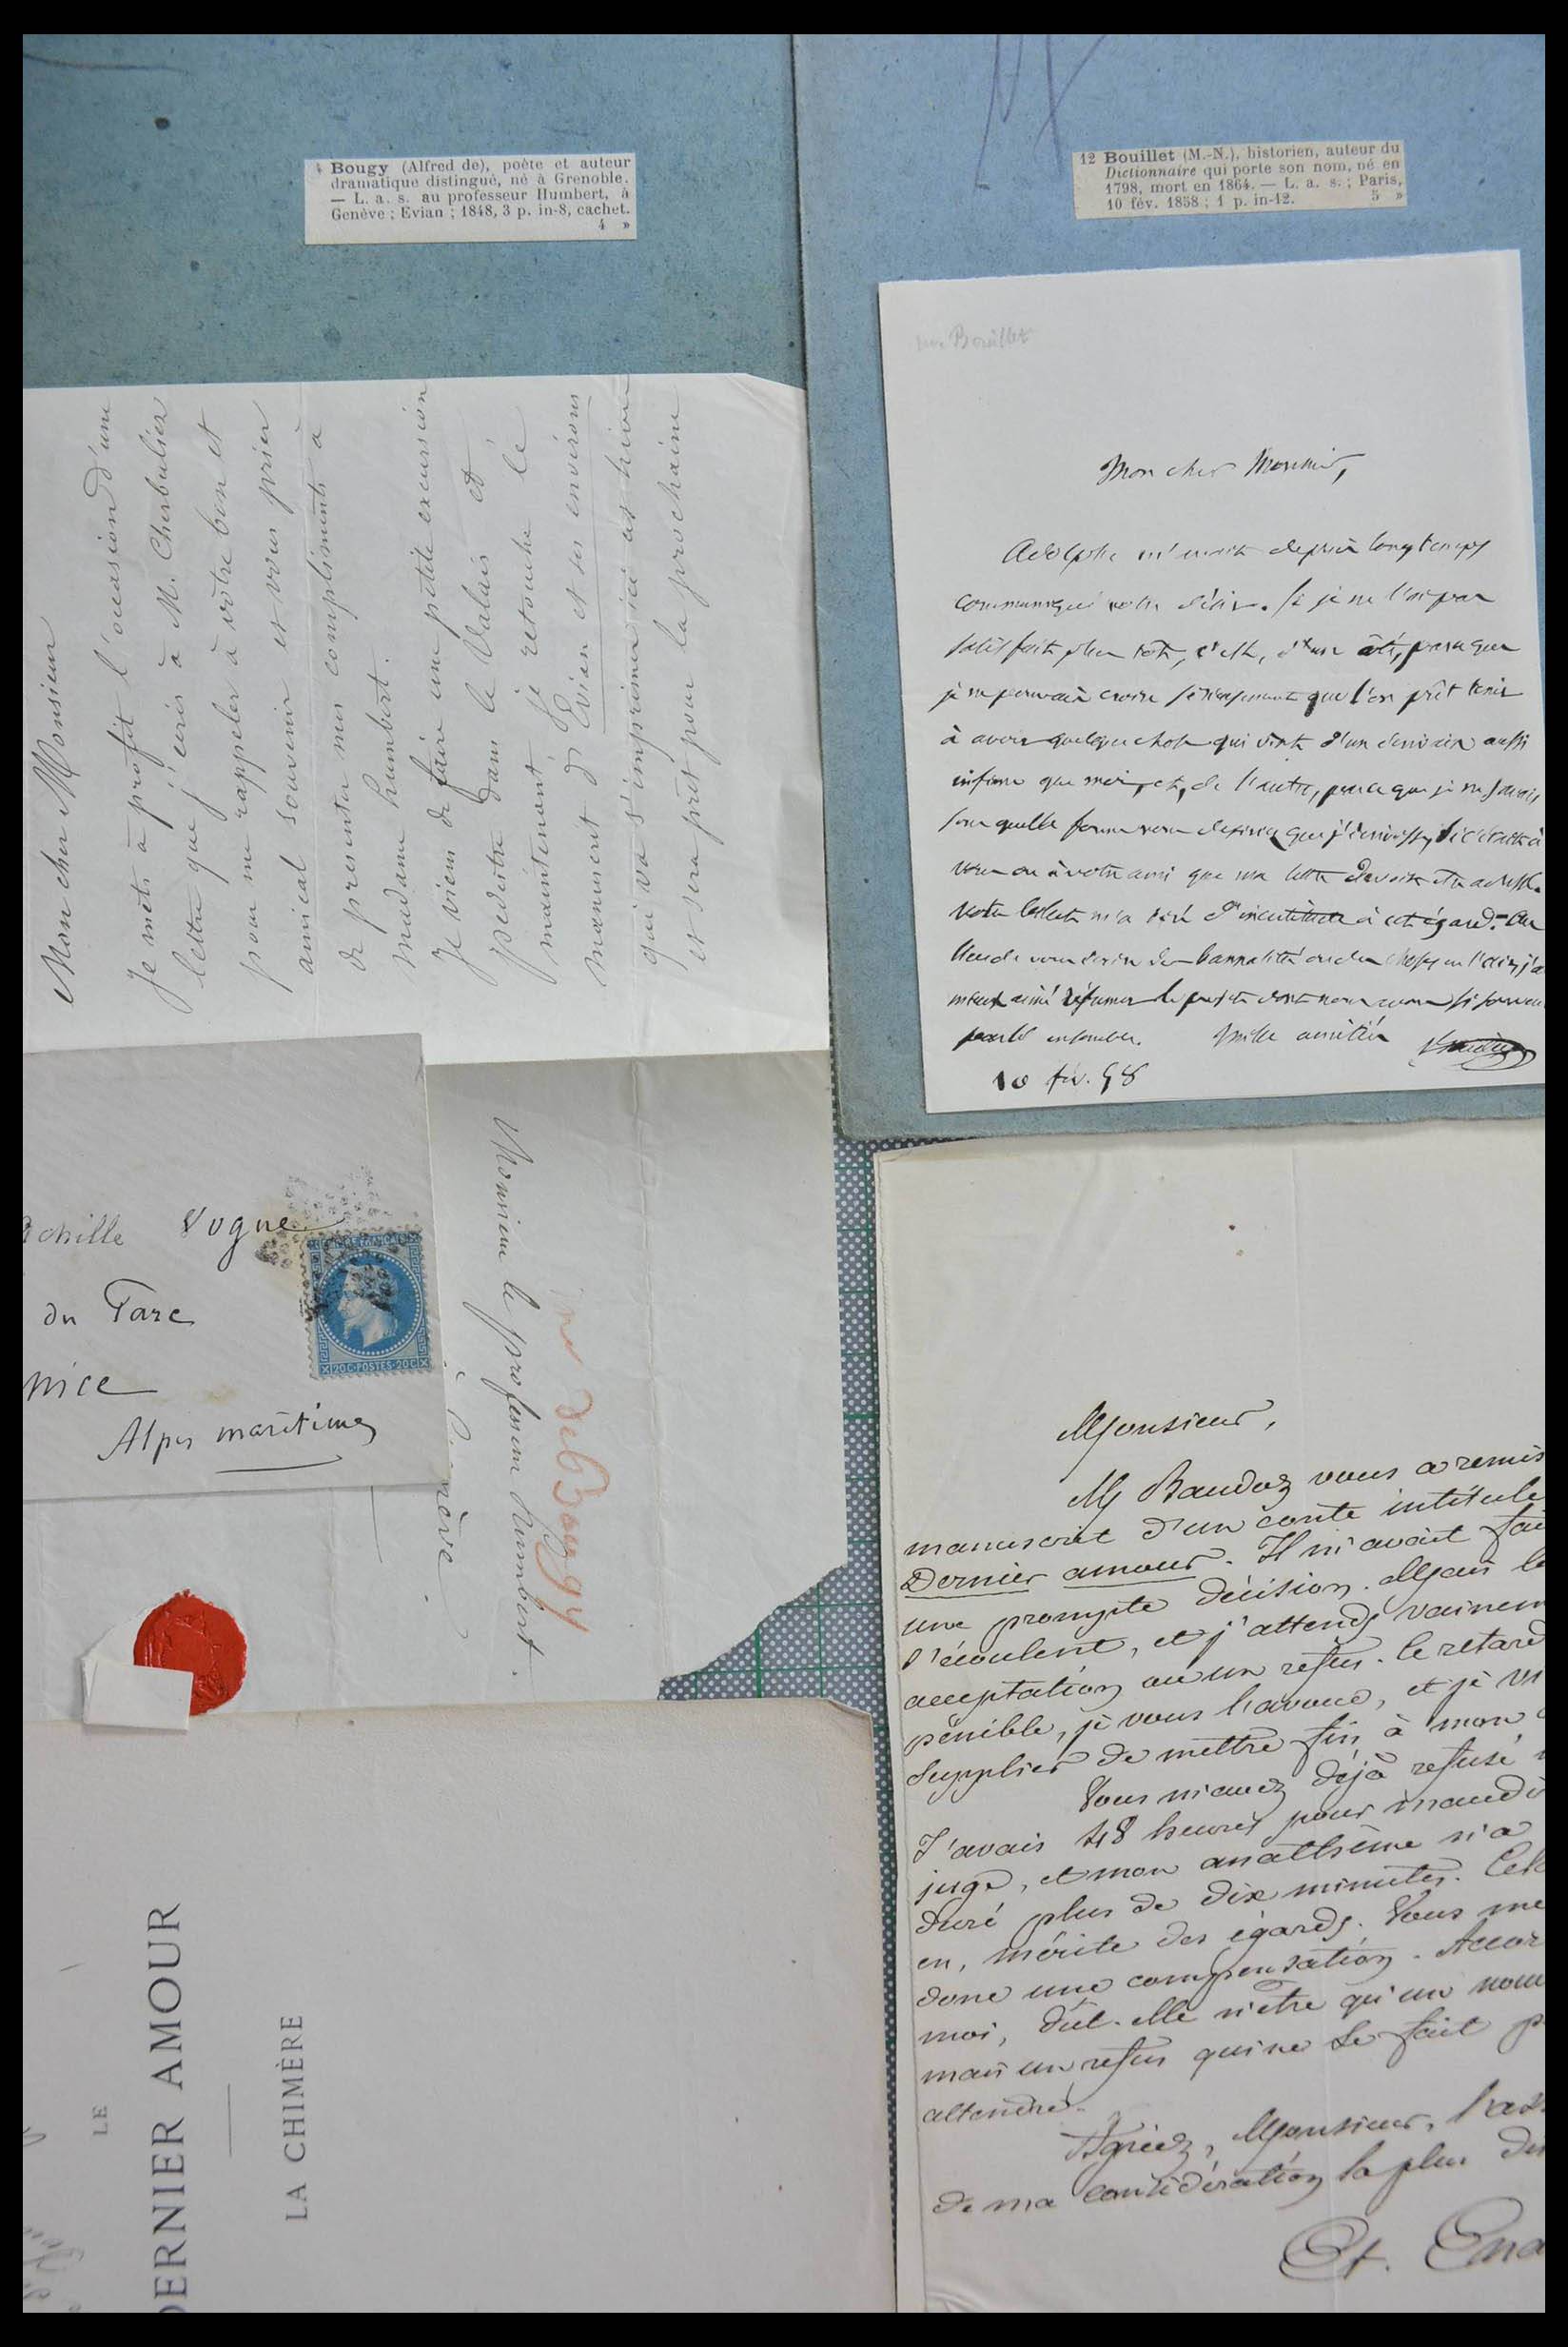 Bougy (Alfred de), poète et auteur
dramatique distingué, né à Grenoble.
— L. a. s. au professeur Humbert, à
Genève ; Evian ; 1848, 3 p. in-8, cachet.
4 »
12 Bouillet (M.-N.), historien, auteur du
Dictionnaire qui porte son nom, né en
1798, mort en 1864. — L. a. s. ; Paris,
10 fév. 1858 ; 1 p. in-12. 5 »
Bouillet
Mon cher Monsieur,
Adolphe m'avait depuis longtemps
communiqué votre désir. Si je ne l'ai pas
satisfait plus tôt, c'est, d'un côté, parce que
je ne pouvais croire sérieusement que l'on pût tenir
à avoir quelque chose qui vint d'un écrivain aussi
infime que moi, et, de l'autre, parce que je ne savais
sous quelle forme vous désiriez que j'écrivisse, si c'était à
vous ou à votre ami que ma lettre devait être adressée.
Votre billet m'a tiré d'incertitude à cet égard. Au
lieu de vous écrire des banalités ou des choses en l'air, j'ai
mieux aimé résumer le projet dont nous avons si souvent
parlé ensemble. Mille amitiés
10 fév. 58
Mon cher Monsieur
Je mets à profit l'occasion d'une
lettre que j'écris à M. Cherbuliez
pour me rappeler à votre bon et
amical souvenir et vous prier
de presenter mes compliments à
madame humbert.
Je viens de faire une petite excursion
pedestre dans le Valais et
maintenant je retouche le
manuscrit d'Evian et ses environs
qui va s'imprimer ici cet hiver
et sera prêt pour la prochaine
chille Vogue
du Parc
nice
Alpes maritimes
20C·POSTES·20C
Monsieur le professeur humbert.
de Bougy
LE
DERNIER AMOUR
LA CHIMÈRE
Monsieur,
M Baudoz vous a remis
manuscrit d'un conte intitulé
Dernier amour. Il m'avait fai
une prompte décision. Mais le
s'écoulent, et j'attends vainem
acceptation ou un refus. Ce retard
pénible, je vous l'avoue, et je vi
supplier de mettre fin à mon
Vous m'avez déjà refusé
J'avais 48 heures pour maudi
juge, et mon anathème n'a
duré plus de dix minutes. Cel
en, mérite des égards. Vous me
donc une compensation. Accor
moi, dût-elle n'être qu'un nou
mais un refus qui ne se fait p
attendre.
Agréez, Monsieur, l'ass
de ma considération la plus dis